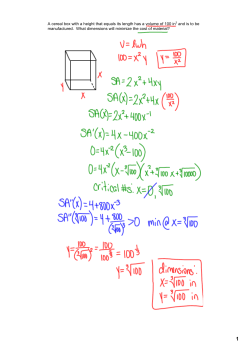 A cereal box with a height that equals its length has a volume of 100 in³ and is to be
manufactured. What dimensions will minimize the cost of material?
V = lwh
100 = x² y
y = 100/x²
y
x
x
SA = 2x² + 4xy
SA(x) = 2x² + 4x (100/x²)
SA(x) = 2x² + 400x⁻¹
SA'(x) = 4x - 400x⁻²
0 = 4x - 400x⁻²
0 = 4x⁻² (x³ - 100)
0 = 4x⁻² (x - ∛100)(x² + ∛100 x + ∛10000)
critical #s: x = 0, ∛100
SA''(x) = 4 + 800x⁻³
SA''(∛100) = 4 + 800/(∛100)³ > 0 min @ x = ∛100
y = 100/(∛100)² = 100/100^(2/3) = 100^(1/3)
y = ∛100
dimensions:
x = ∛100 in
y = ∛100 in
1